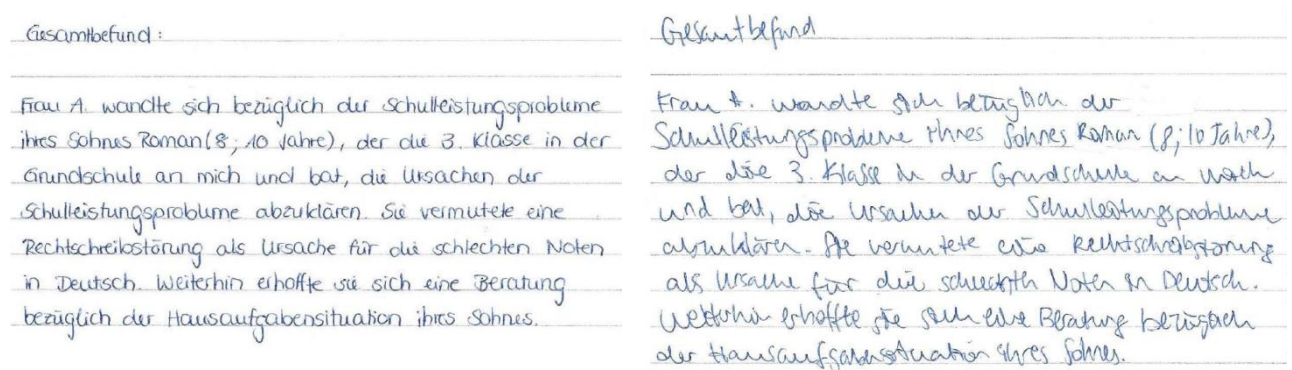 Gesamtbefund:
Frau A. wandte sich bezüglich der Schulleistungsprobleme
ihres Sohnes Roman (8; 10 Jahre), der die 3. Klasse in der
Grundschule an mich und bat, die Ursachen der
Schulleistungsprobleme abzuklären. Sie vermutete eine
Rechtschreibstörung als Ursache für die schlechten Noten
in Deutsch. Weiterhin erhoffte sie sich eine Beratung
bezüglich der Hausaufgabensituation ihres Sohnes.
Gesamtbefund
Frau A. wandte sich bezüglich der
Schulleistungsprobleme ihres Sohnes Roman (8; 10 Jahre),
der die 3. Klasse in der Grundschule an mich
und bat, die Ursachen der Schulleistungsprobleme
abzuklären. Sie vermutete eine Rechtschreibstörung
als Ursache für die schlechten Noten in Deutsch.
Weiterhin erhoffte sie sich eine Beratung bezüglich
der Hausaufgabensituation ihres Sohnes.